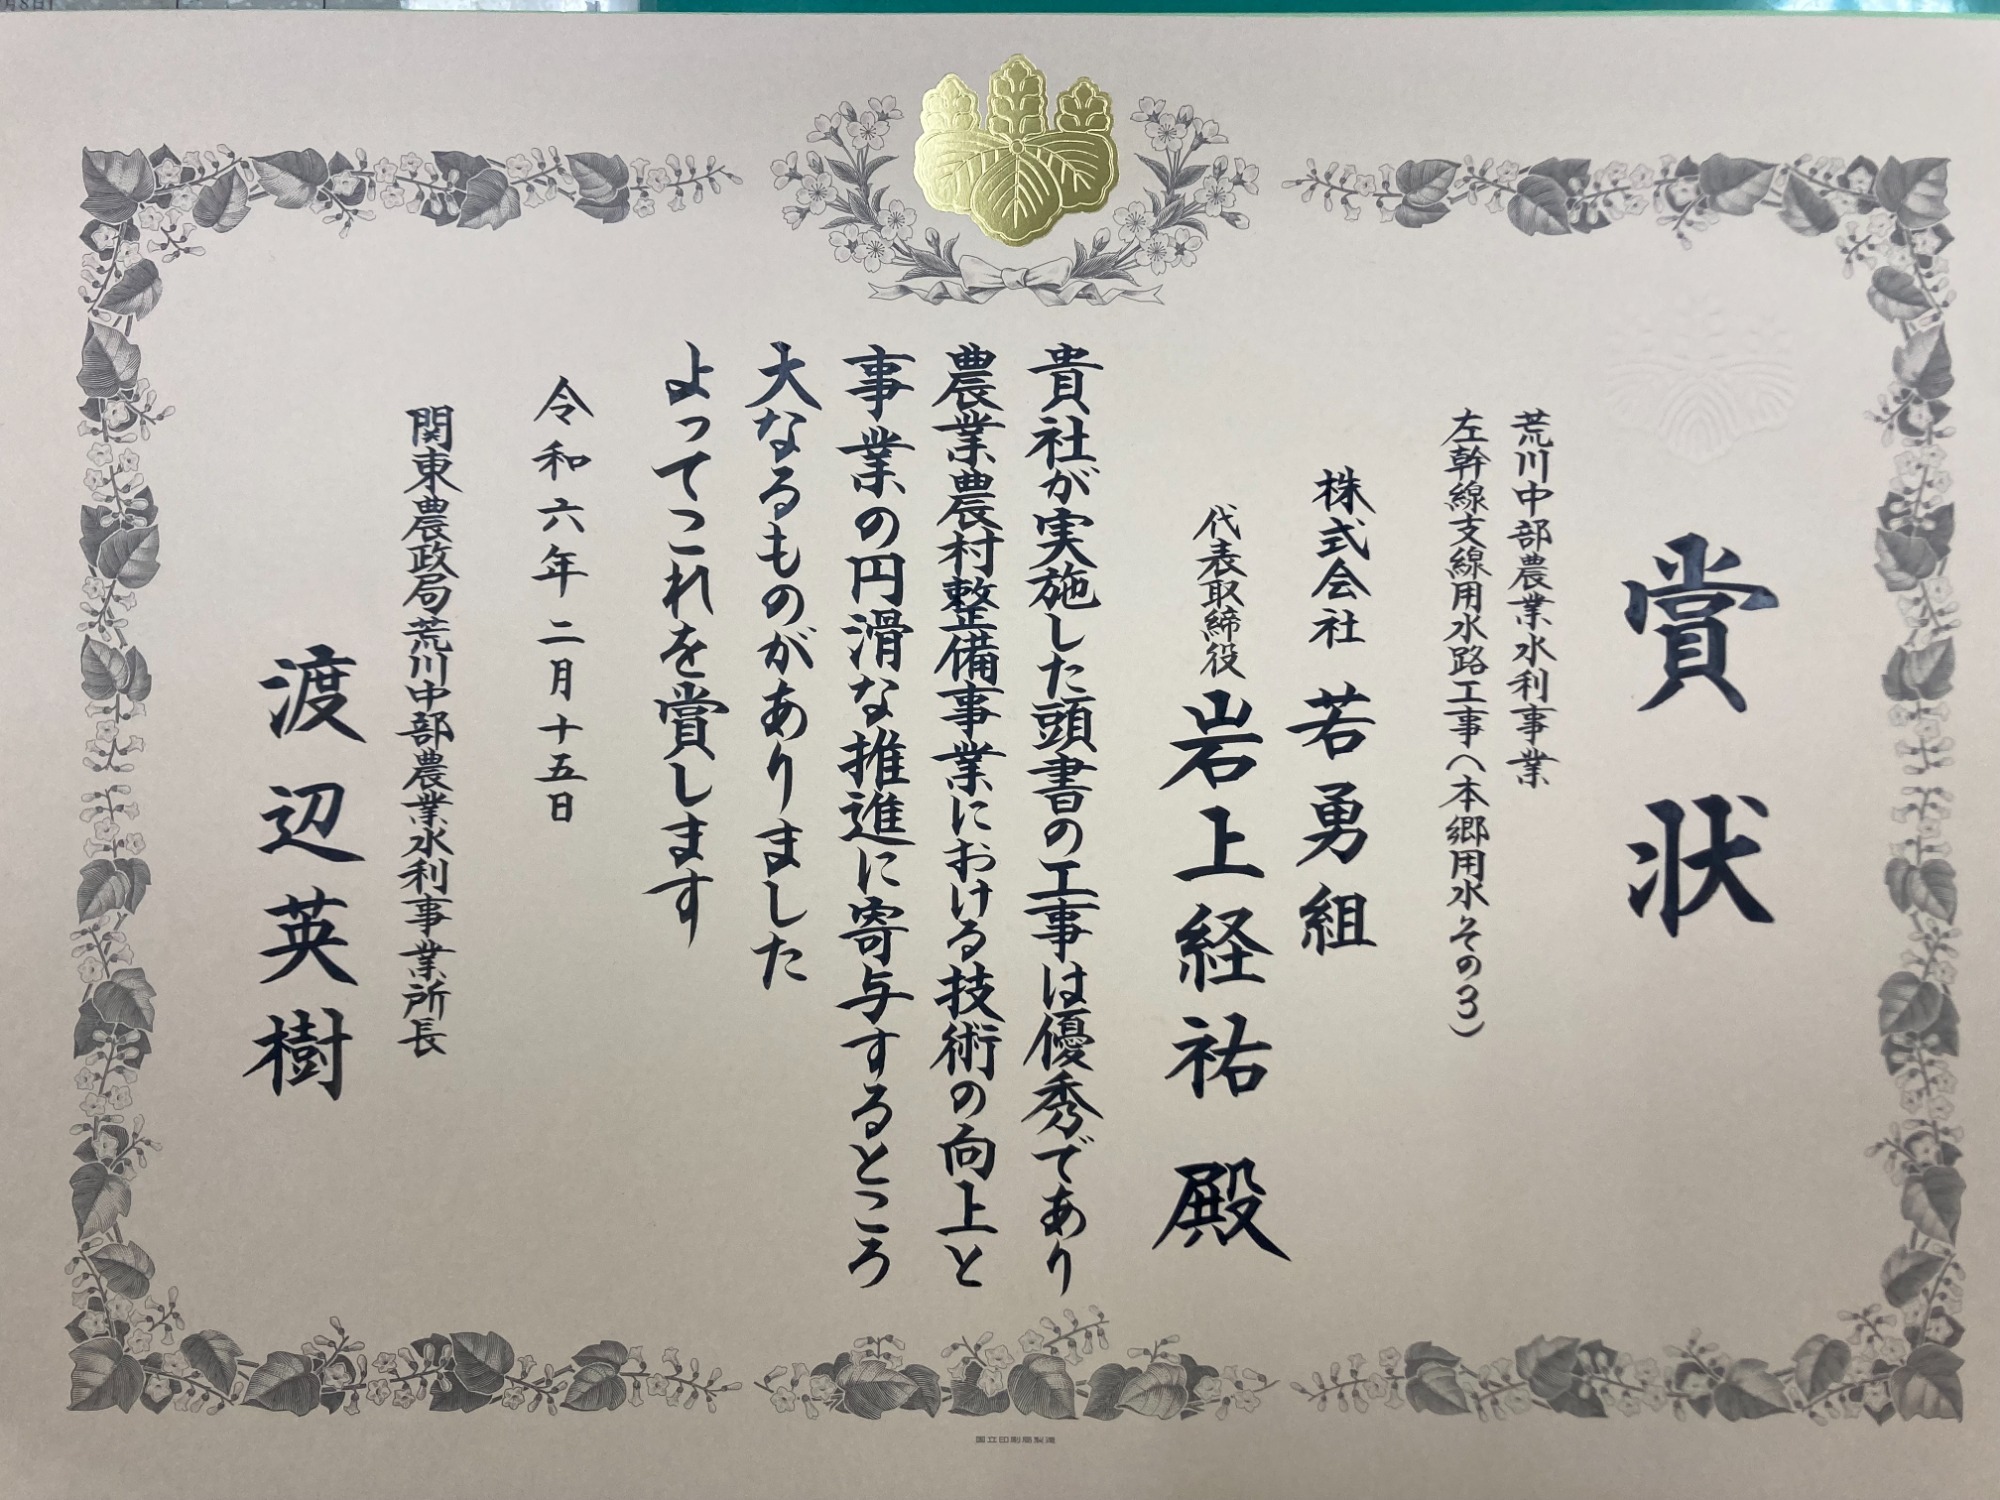 賞状
荒川中部農業水利事業
左幹線支線用水路工事(本郷用水その3)
株式会社 若勇組
代表取締役 岩上経祐 殿
貴社が実施した頭書の工事は優秀であり
農業農村整備事業における技術の向上と
事業の円滑な推進に寄与するところ
大なるものがありました
よってこれを賞します
令和六年二月十五日
関東農政局荒川中部農業水利事業所長
渡辺英樹
国立印刷局製造